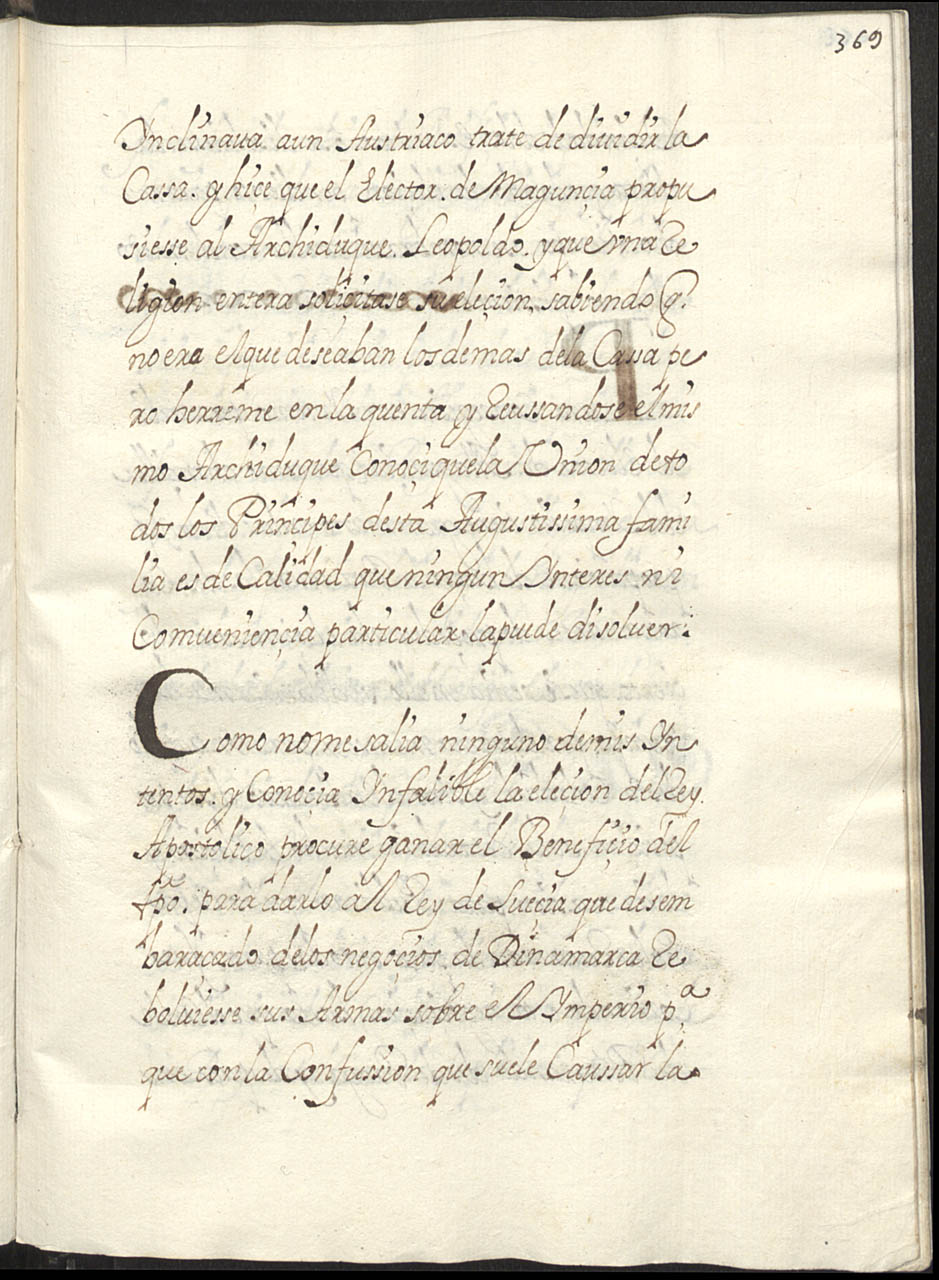 369
Ynclinaua aun Austriaco trate de diuidir la
Cassa. y hiçe que el Elector. de Magunçia propu
siesse al Archiduque. Leopoldo. y que vna Re
ligion entera soliçitase su eleçion, sabiendo q.
no era el que deseaban los demas de la Cassa pe
ro herreme en la quenta y Reussandose el mis
mo Archiduque Conoçi que la Vnion de to
dos los Prinçipes desta Augustissima fami
lia es de Calidad que ningun Ynteres ni
Comueniençia particular la puede disoluer.
Como no me salia ninguno de mis Yn
tentos. y Conoçia Ynfalible la eleçion del Rey.
Apostolico procure ganar el Benefiçio del
tpo. para darlo al Rey de Sueçia que desem
baraçado de los negoçios de Dinamarca Re
boluiesse sus Armas sobre el Ymperio pª
que con la Confussion que suele Caussar la